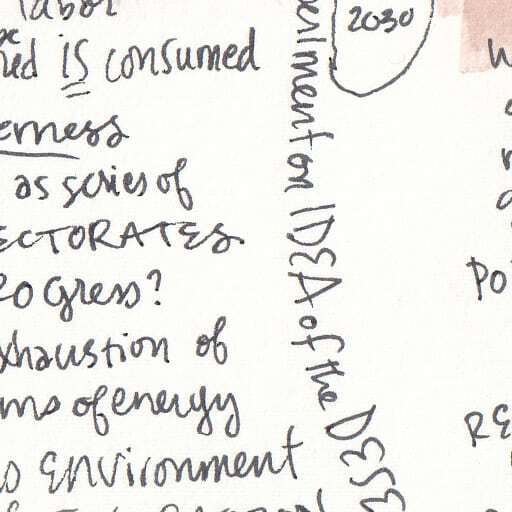 labor
IS consumed
erness
as series of
ECTORATES
rogress?
xhaustion of
ms of energy
o environment
2030
ment on IDEA of the DESE
W
po
RE